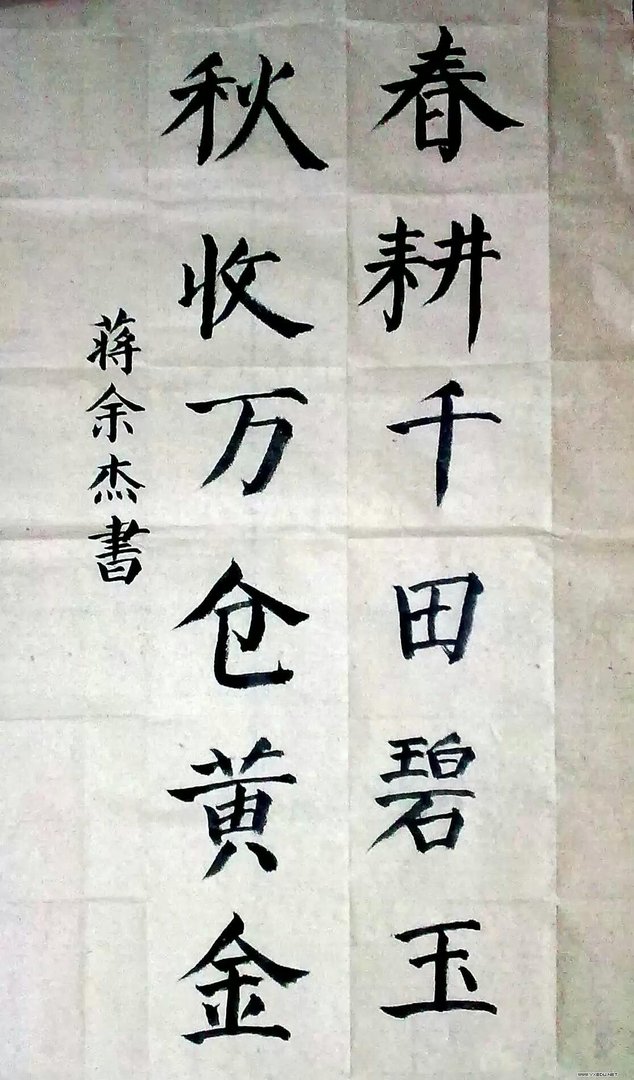 春耕千田碧玉
秋收万仓黄金
蒋余杰書